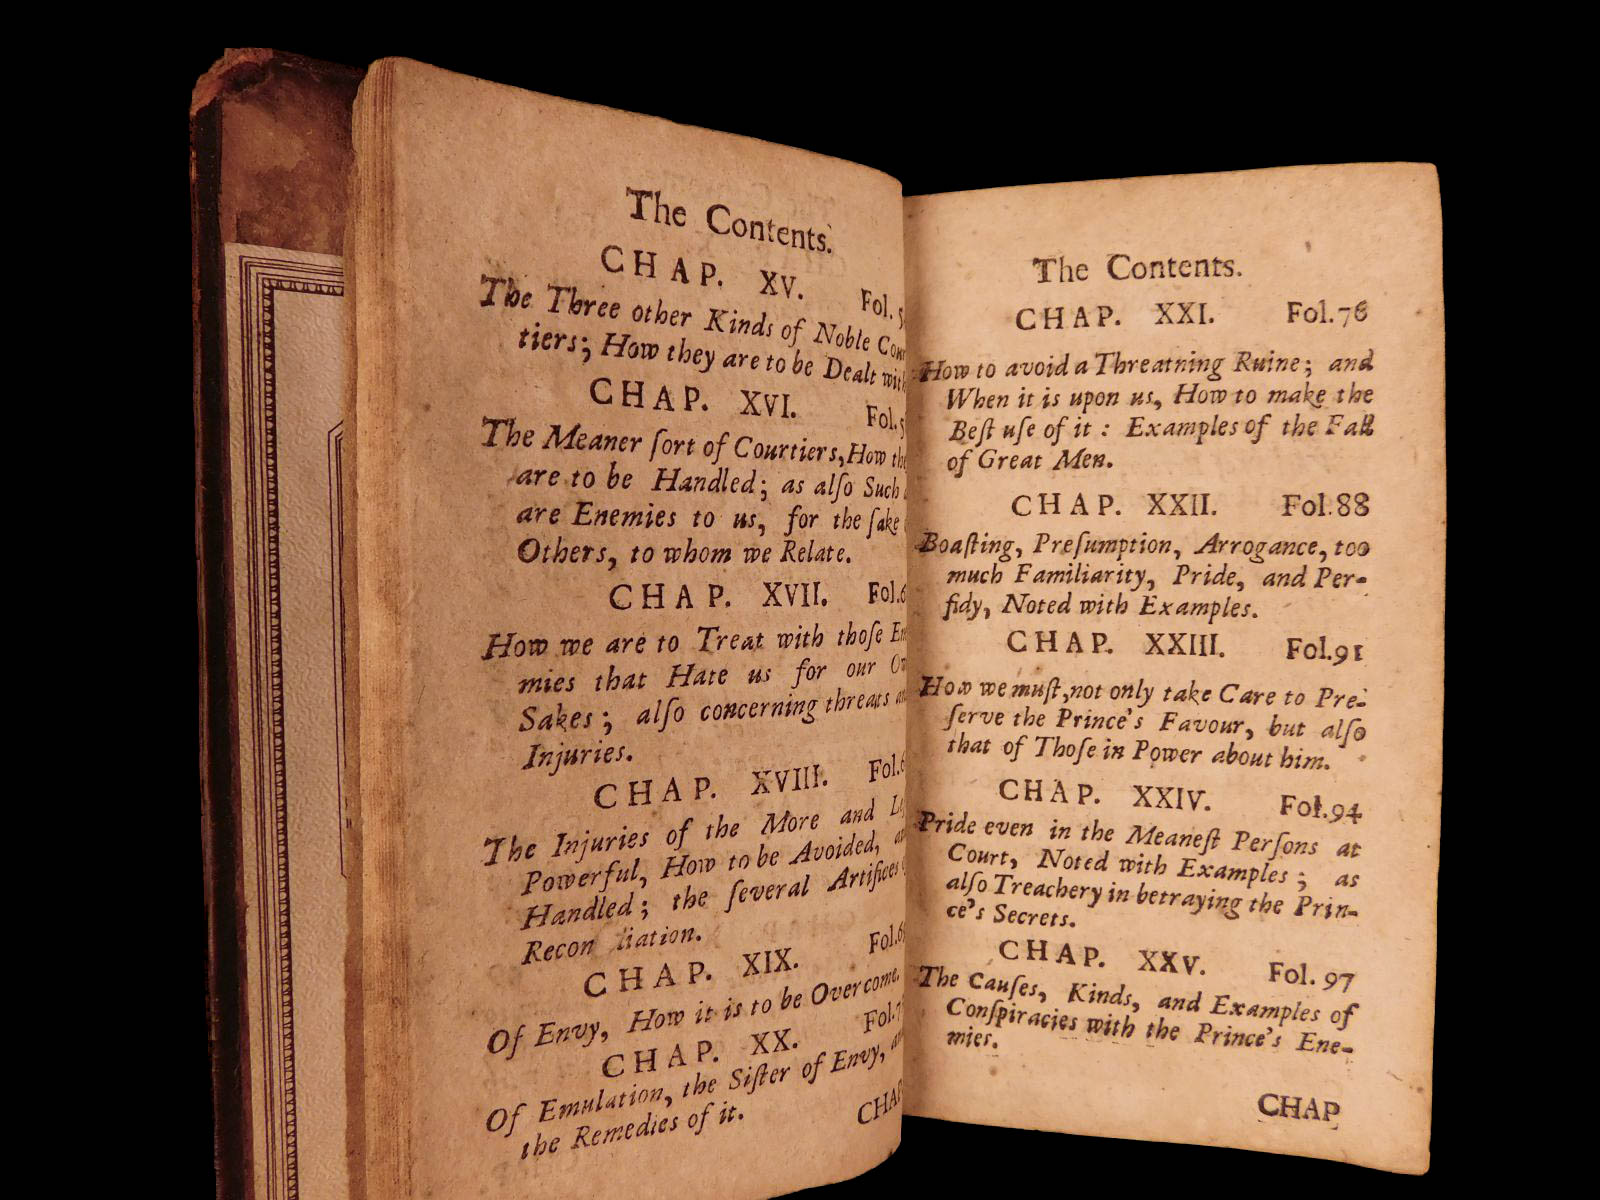 The Contents.
CHAP. XV. Fol. 5
The Three other Kinds of Noble Cour
tiers; How they are to be Dealt with
CHAP. XVI. Fol. 5
The Meaner ſort of Courtiers, How the
are to be Handled; as alſo Such
are Enemies to us, for the ſake
Others, to whom we Relate.
CHAP. XVII. Fol. 6
How we are to Treat with thoſe En
mies that Hate us for our Ow
Sakes; alſo concerning threats an
Injuries.
CHAP. XVIII. Fol. 6
The Injuries of the More and Le
Powerful, How to be Avoided, an
Handled; the ſeveral Artifices
Recon iliation.
CHAP. XIX. Fol. 6
Of Envy, How it is to be Overcome.
CHAP. XX. Fol. 7
Of Emulation, the Siſter of Envy, an
the Remedies of it.
CHAP
The Contents.
CHAP. XXI. Fol. 76
How to avoid a Threatning Ruine; and
When it is upon us, How to make the
Beſt uſe of it : Examples of the Fall
of Great Men.
CHAP. XXII. Fol. 88
Boaſting, Preſumption, Arrogance, too
much Familiarity, Pride, and Per-
fidy, Noted with Examples.
CHAP. XXIII. Fol. 91
How we muſt, not only take Care to Pre-
ſerve the Prince's Favour, but alſo
that of Thoſe in Power about him.
CHAP. XXIV. Fol. 94
Pride even in the Meaneſt Perſons at
Court, Noted with Examples; as
alſo Treachery in betraying the Prin-
ce's Secrets.
CHAP. XXV. Fol. 97
The Cauſes, Kinds, and Examples of
Conſpiracies with the Prince's Ene-
mies.
CHAP